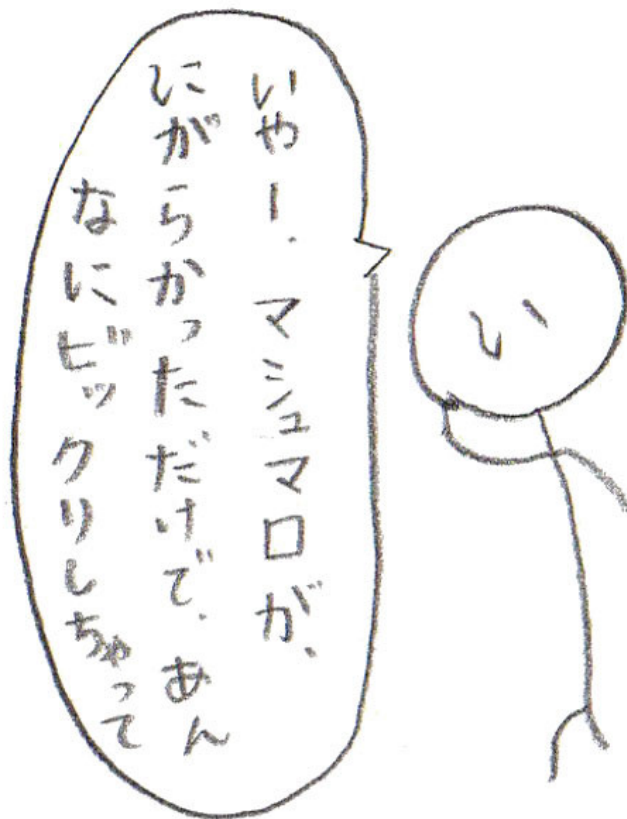 いやー、マシュマロが、
にがらかっただけで、あん
なにビックリしちゃって